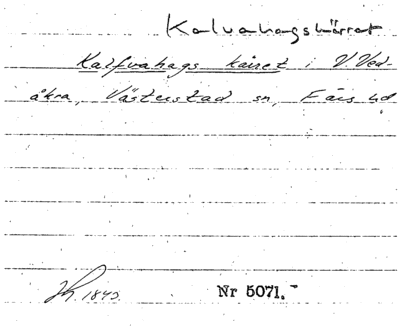 Kalvahagskärret
Kalfvahags kärret i V Ved-
åkra, Västerstad sn, Färs hd
1843. Nr 5071.